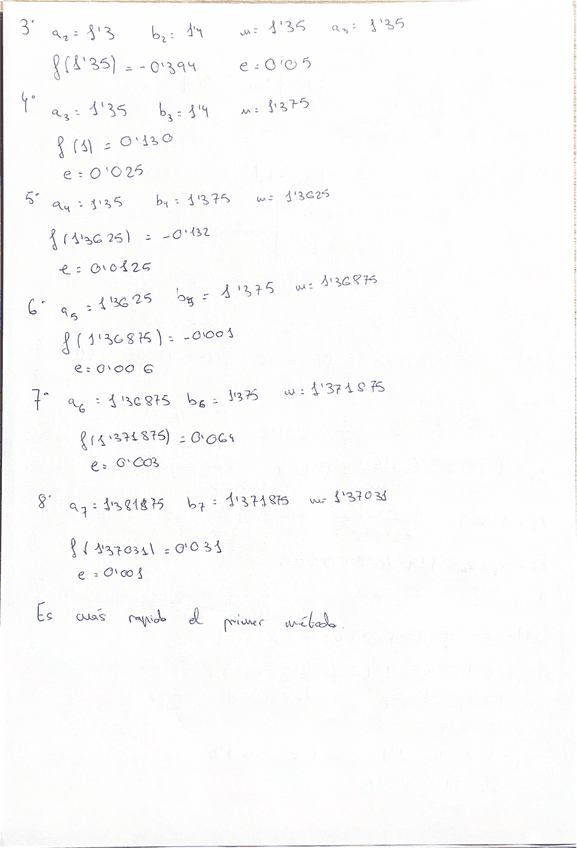 3° a₂ = 1'3 b₂ = 1'4 m = 1'35 a₃ = 1'35
f(1'35) = -0'394 e = 0'05
4° a₃ = 1'35 b₃ = 1'4 m = 1'375
f(1) = 0'130
e = 0'025
5° a₄ = 1'35 b₄ = 1'375 m = 1'3625
f(1'3625) = -0'132
e = 0'0125
6° a₅ = 1'3625 b₅ = 1'375 m = 1'36875
f(1'36875) = -0'001
e = 0'006
7° a₆ = 1'36875 b₆ = 1'375 m = 1'371875
f(1'371875) = 0'064
e = 0'003
8° a₇ = 1'381875 b₇ = 1'371875 m = 1'37031
f(1'37031) = 0'031
e = 0'001
Es más rapido el primer método.